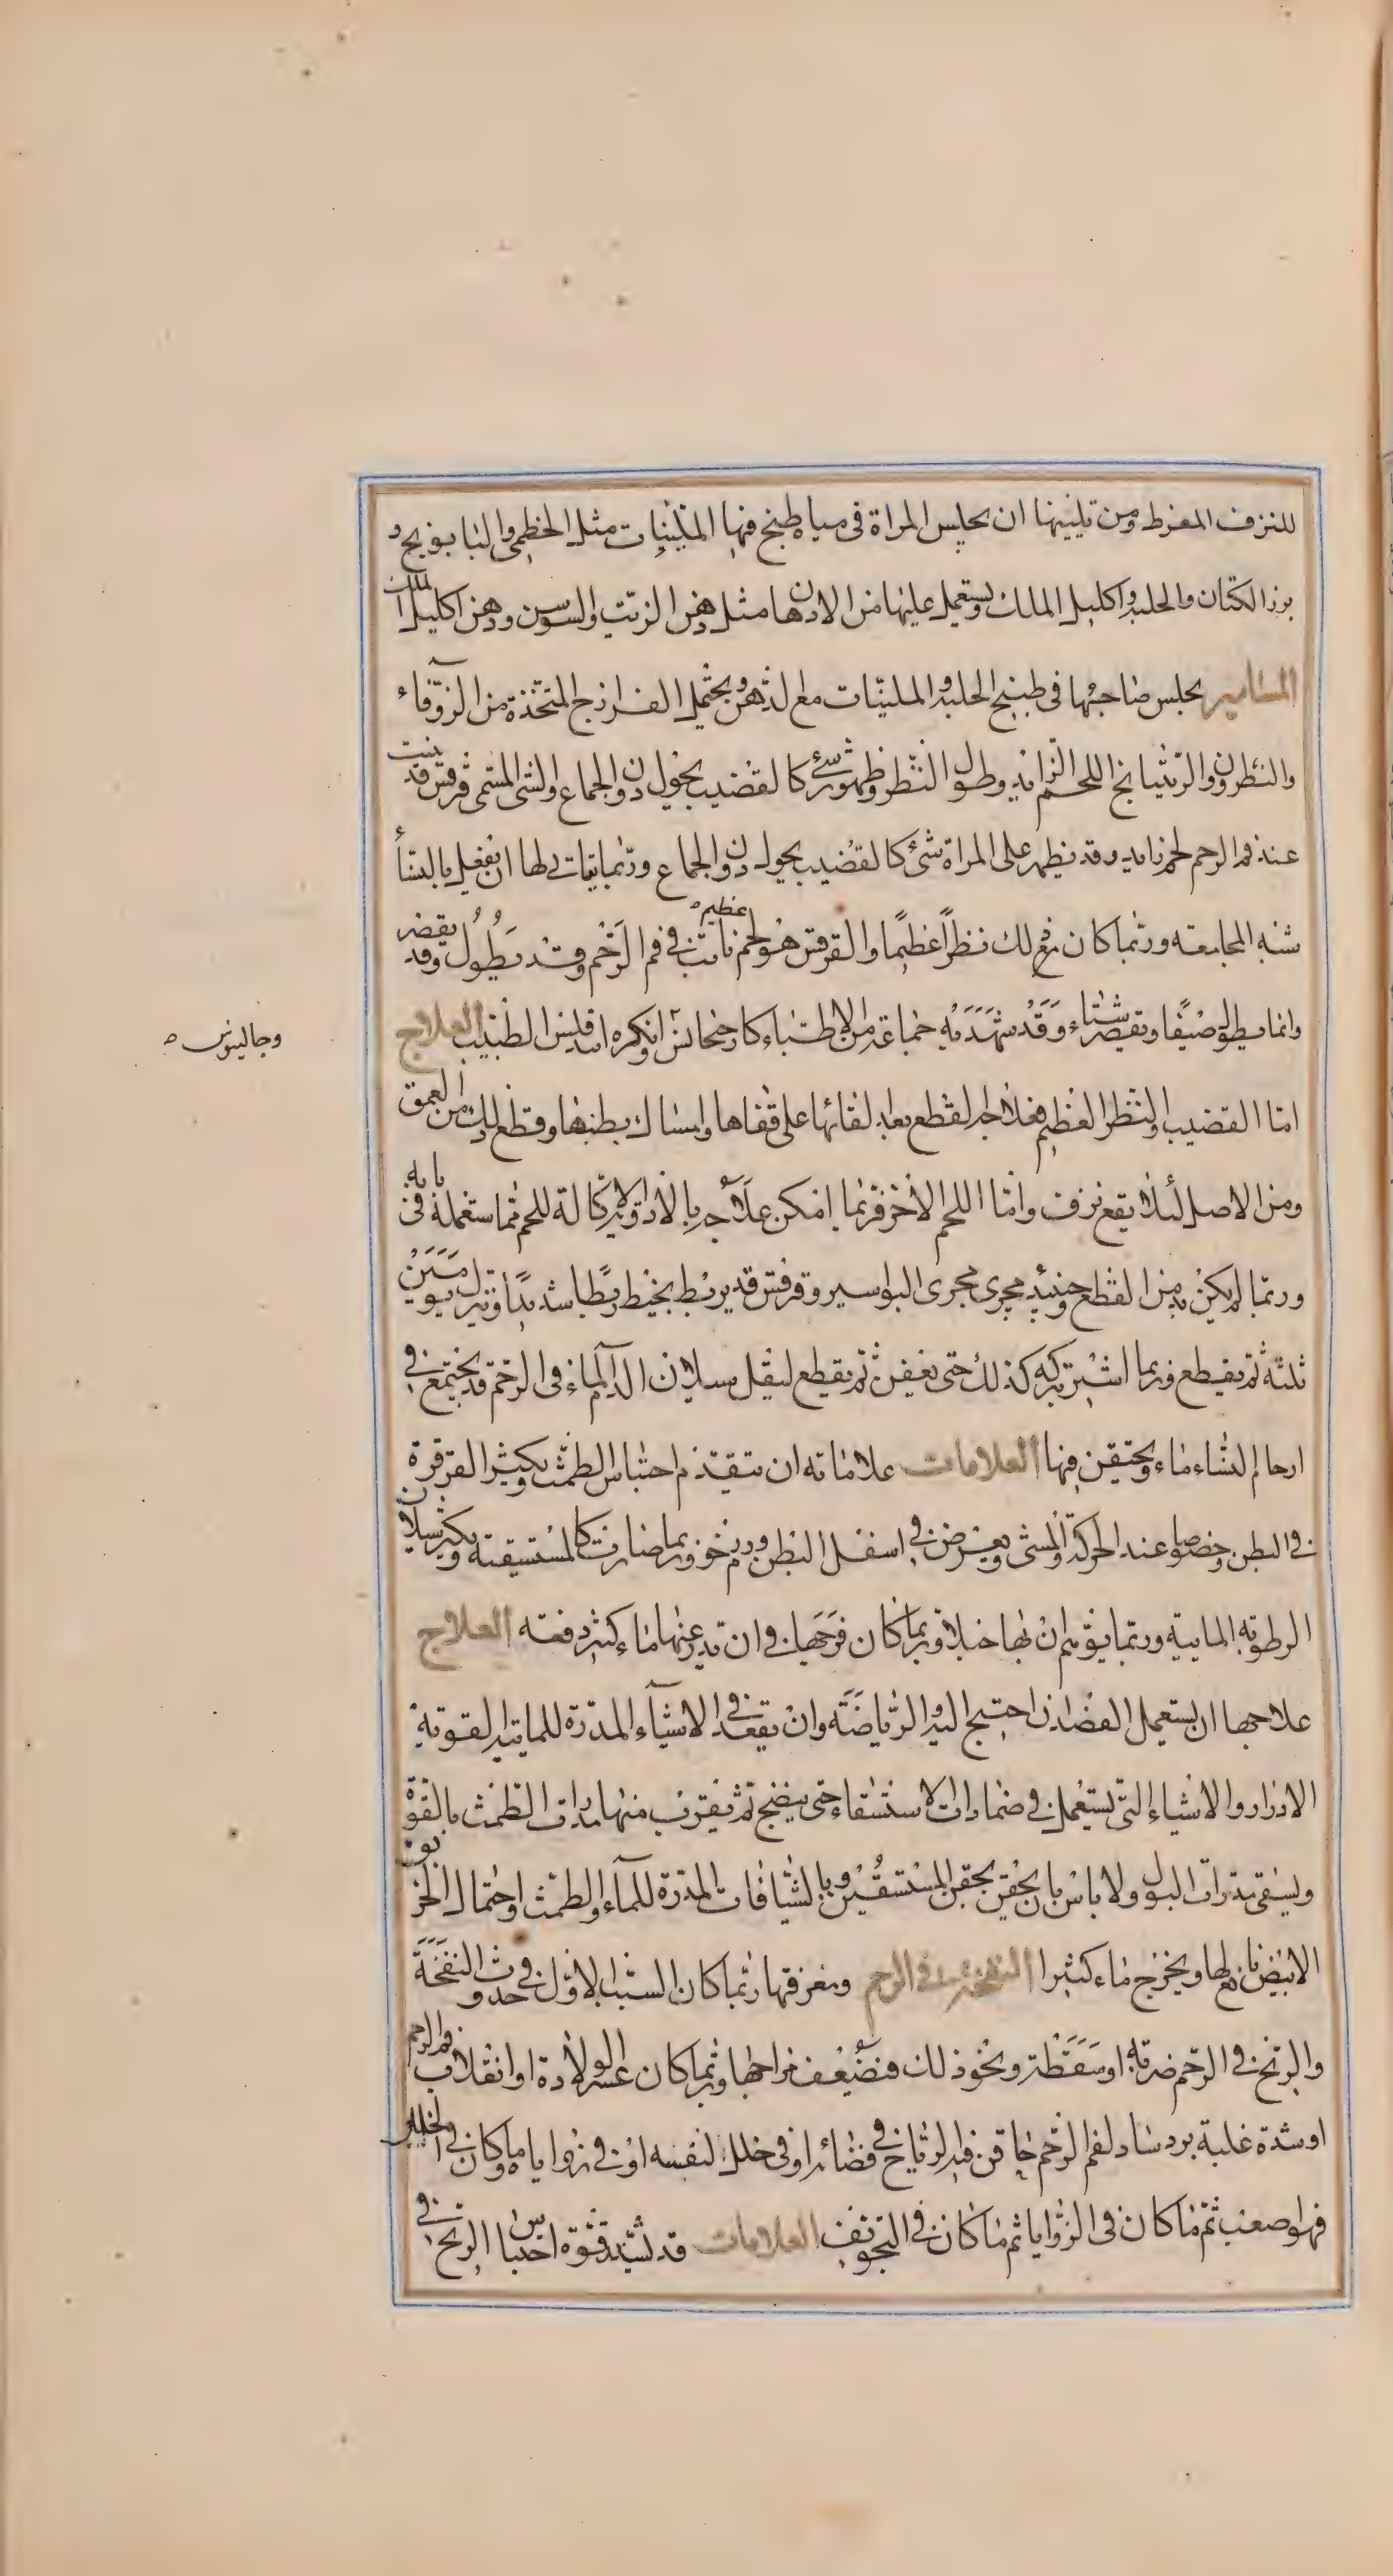 للنزف المفرط ومن تليينها ان يجلس المراة فى مياه طبخ فيها الملينات مثل الخطمى والبابونج و
بزر الكتان والحلبة واكليل الملك ويستعمل عليها من الادهان مثل دهن الزيت والسوسن ودهن اكليل الملك
المسامير يجلس صاحبها فى طبيخ الحلبة والملينات مع الدهن ويحتمل الفرازج المتخذة من الزوفاء
والنطرون والراتيانج اللحم الزايد وطول البظر وظهور شئ كالقضيب يحول دون الجماع والشئ المسمى قرقس قد ينبت
عند فم الرحم لحم زايد وقد يظهر على المراة شئ كالقضيب يحول دون الجماع وربما يتاتى لها ان يفعل بالنسأ
شبه المجامعة وربما كان ذلك بظراً عظيمًا والقرقس هو لحم نابت فى فم الرحم وقد يطول وقد يقصر
عظيم
وانما يطول صيفًا ويقصر شتاء وقد شهد به جماعة من الاطباء كارجحانس وانكره انبدقليس الطبيب العلاج
وجالينوس
اما القضيب والبظر العظيم فعلاجه القطع بعد القائها على قفاها وامساك بظرها وقطع ذلك من العمق
ومن الاصل لئلا يقع نزف واما اللحم الاخر فربما امكن علاجه بالادوية الاكالة للحم مما ستعمله فى بابه
وربما لم يكن بد من القطع وحينئذ يجرى مجرى البواسير وقرقس قد يربط بخيط ربطًا شديدًا ويترك يومين
ثلثة ثم يقطع وربما اشير بتركه كذلك حتى يعفن ثم يقطع ليقل سيلان الدم الماء فى الرحم قد يجتمع فى
ارحام النساء ماء ويحتقن فيها العلامات علاماته ان يتقدم احتباس الطمث ويكثر القرقرة
فى البطن وخصوصا عند الحركة والمشى ويعرض فى اسفل البطن ورم رخو وربما صارت كالمستسقية ويكثر سيلان
الرطوبة المايية وربما توهم ان بها حبلا وربما كان فرجها فى ان تدر عنها ماء كثير دفعه العلاج
علاجها ان يستعمل الفصد ان احتيج اليه والرياضة وان يقعد فى الاشياء المدرة للمايية القوية
الادرار والاشياء التى يستعمل فى ضمادات الاستسقاء حتى ينضج ثم يقرب منها مدرات الطمث بالقوة
ويسقى مدرات البول ولا باس بان يحقن بحقن المستسقين وبالشيافات المدرة للماء والطمث واحتمال الخربق
الابيض نافع لها ويخرج ماء كثيرا النفخة فى الرحم ومعرفتها ربما كان السبب الاول فى حدوث النفخة
والريح فى الرحم ضربة او سقطة ونحو ذلك فيضعف مزاجها وربما كان عسر الولادة او انقلاب فم الرحم
او شدة غلبة برد ساد لفم الرحم حاقن فيه الرياح فى فضائه او فى خلل لنفسه او فى زوايا ماه وكان فى الخلل
فهو اصعب ثم ما كان فى الزوايا ثم ما كان فى التجويف العلامات قد تشتد قوة احتباس الريح فى